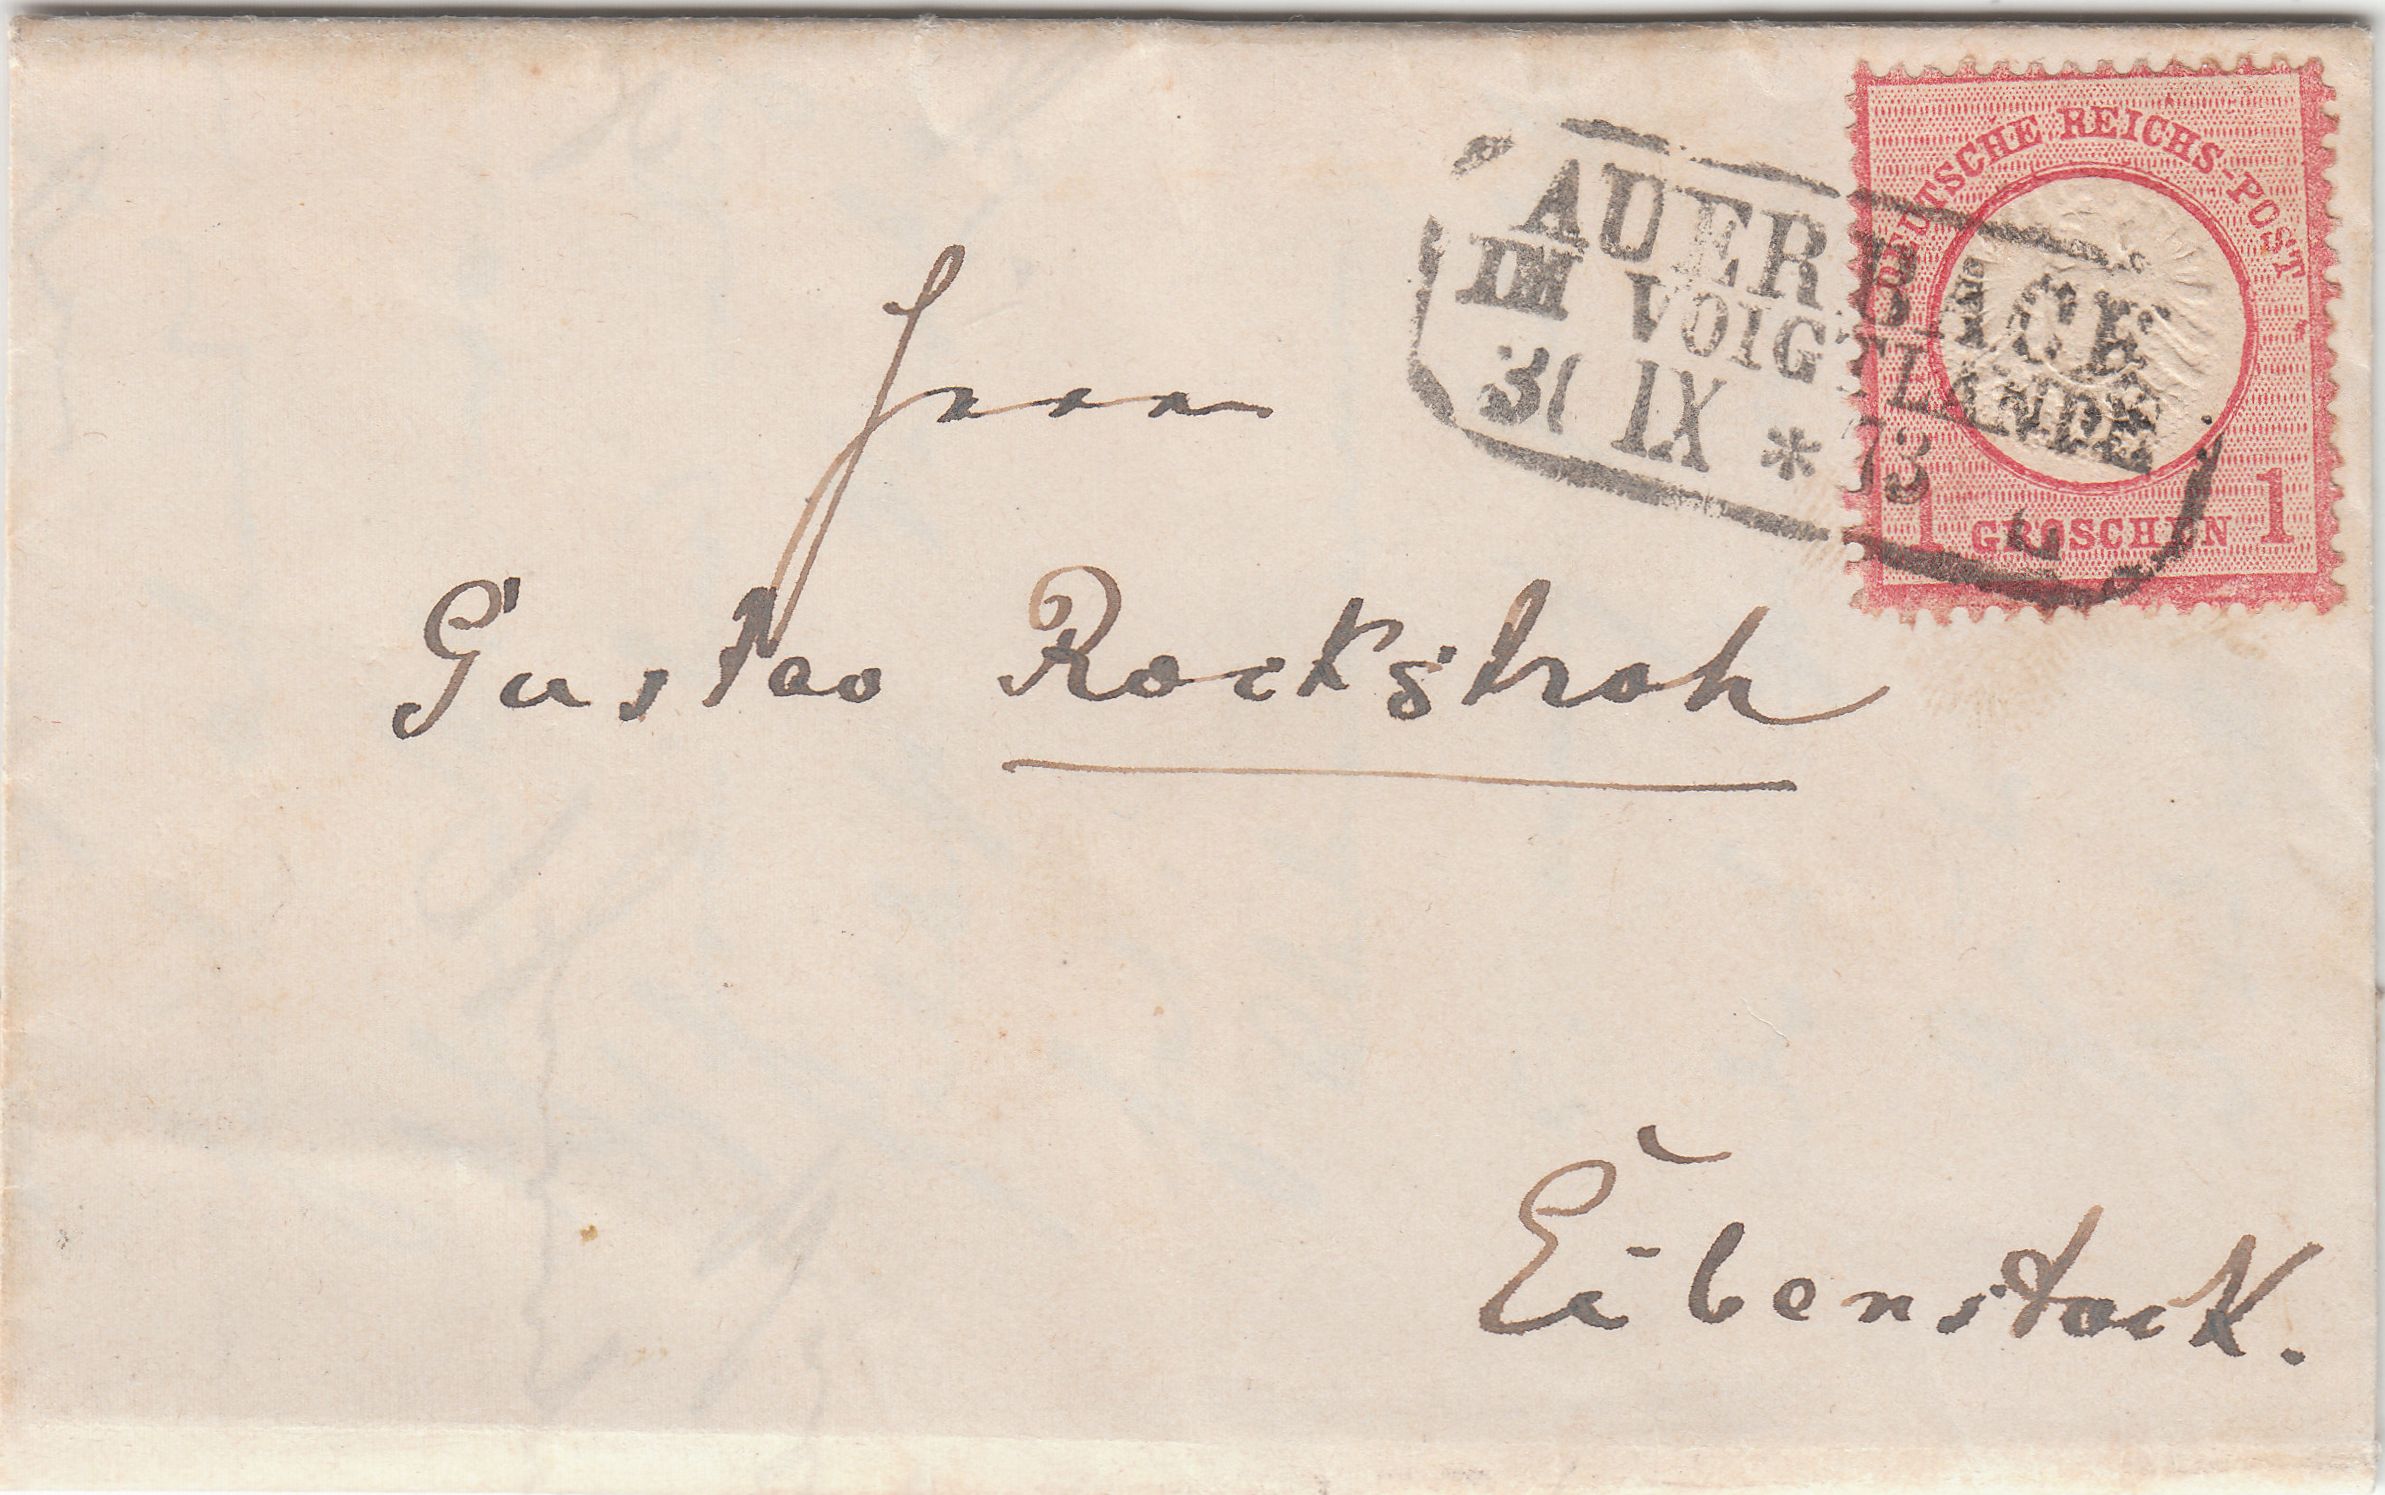 DEUTSCHE REICHS-POST
AUERBACH
IM VOIGTLANDE
30 IX * 73
1 GROSCHEN 1
Herrn
Gustav Rockstroh
Eibenstock.